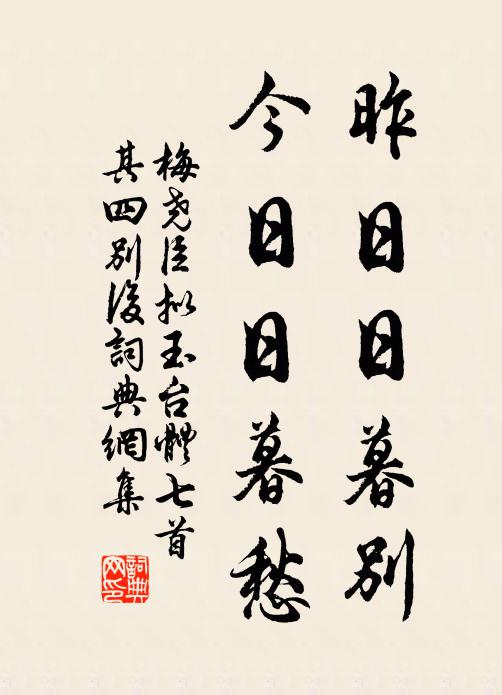 昨日日暮别
今日日暮愁
梅尧臣拟玉台體七首
其四别後詞典網集
詞典网印